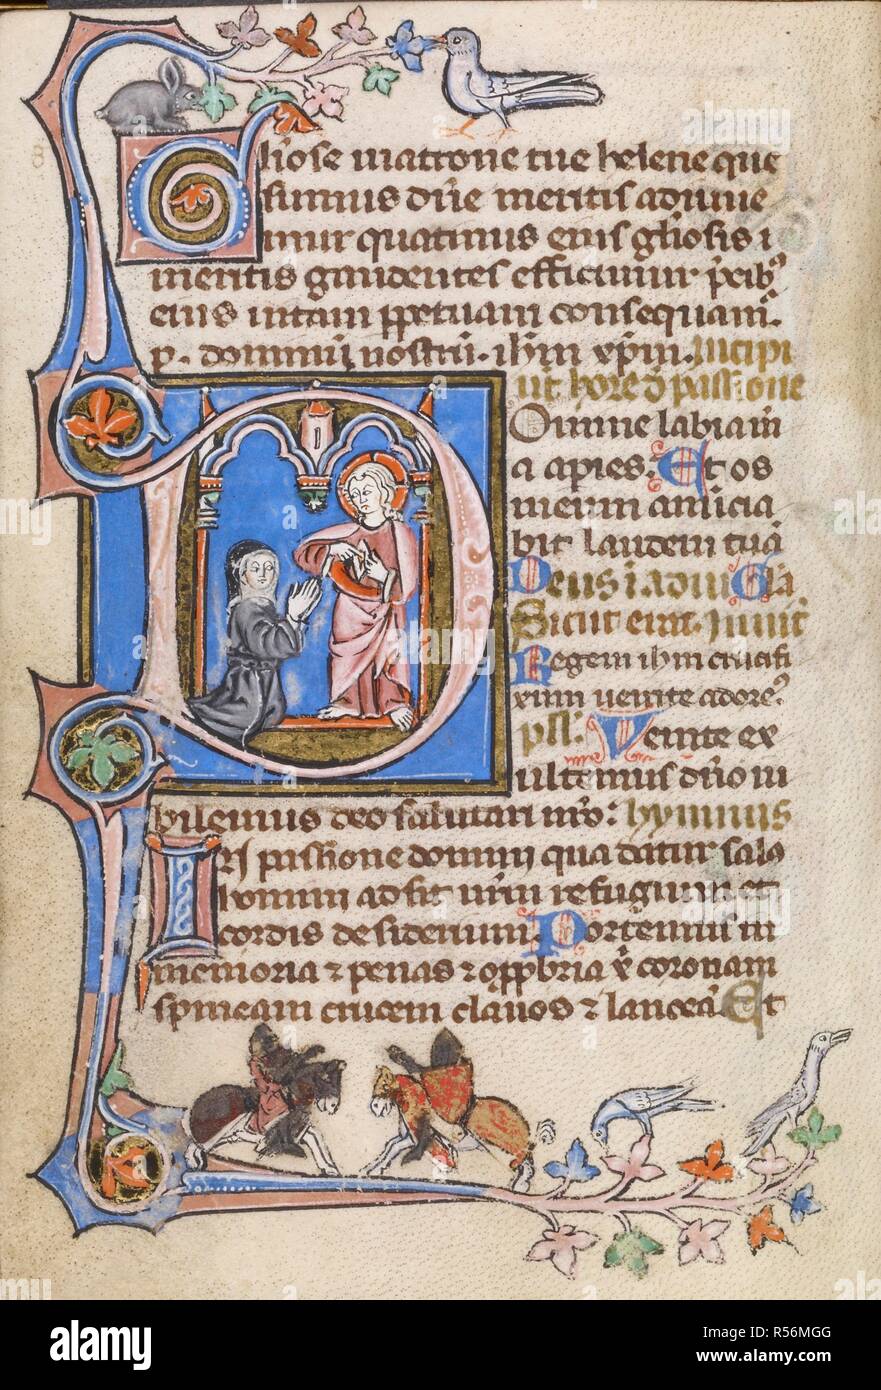 Gliose matrone tue helene que
sumus dn̄e meritis adiuue
mur quatinus eius gliosis i
meritis gaudentes efficimur p̄cib⁹
eius uitam ꝑpetuam consequam̄.
p. dominū nostrū. ihm̄ xp̄m. Incipi
unt hore d̄ passione
Domine labia m̄
a apies. Et os
meum annūcia
bit laudem tuā
Deus i adiu Gla
Sicut erat. inuit
Regem ihm̄ crucifi
xum uenite adore⁹.
ps̄. Venite ex
ultemus dn̄o iu
bilemus deo salutari nr̄o: hymnus
In passione domini qua datur salꝰ
homini ad sit nr̄m refugium et
cordis desiderium. Portemus in
memoria ⁊ penas ⁊ opp̄bria x̄ coronam
spineam crucem clauos ⁊ lanceā. Et
alamy
Image ID: R56MGG
www.alamy.com